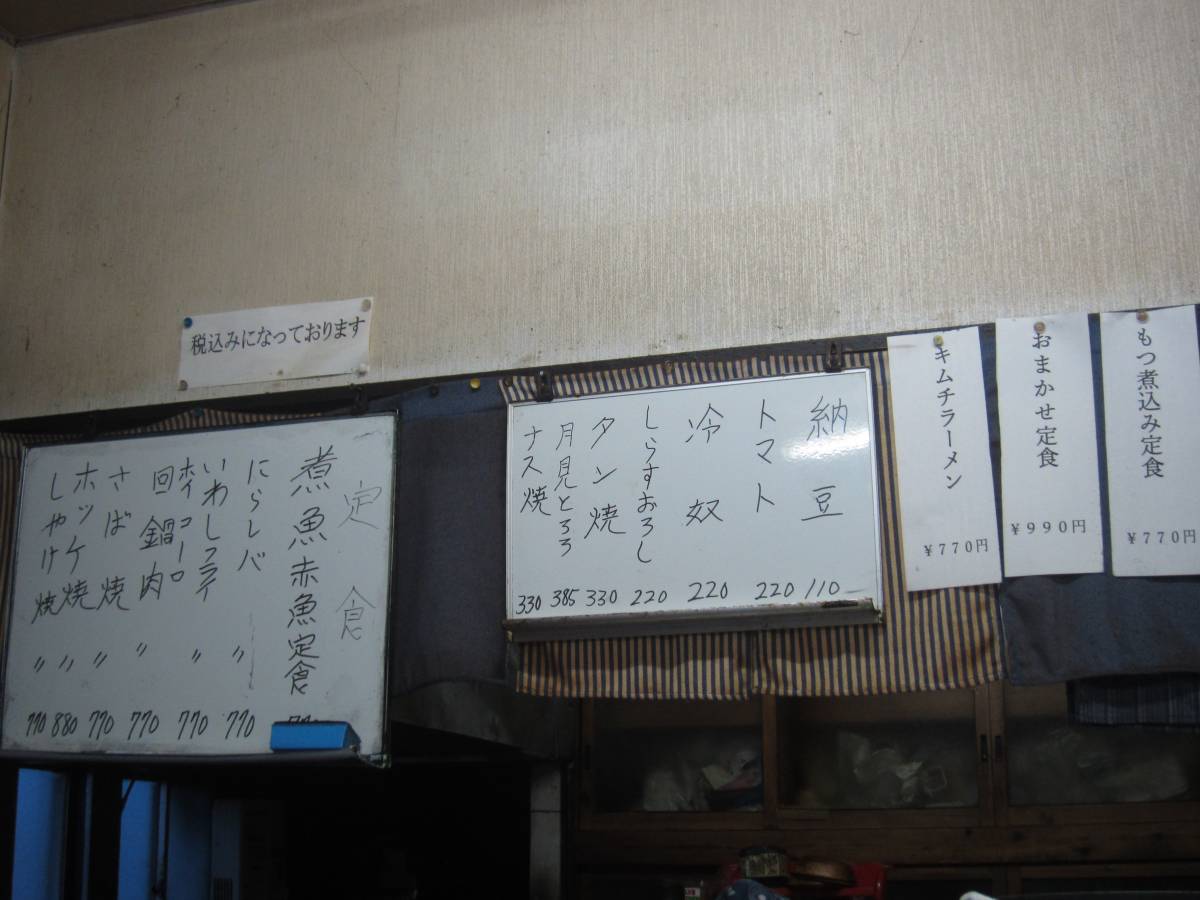 税込みになっております
もつ煮込み定食
¥770円
おまかせ定食
¥990円
キムチラーメン
¥770円
納豆 110
トマト 220
冷奴 220
しらすおろし 220
タン焼 330
月見とろろ 385
ナス焼 330
定食
煮魚赤魚定食
にらレバ 〃 770
いわしフライ 〃 770
ホイコーロ
回鍋肉 〃 770
さば焼 〃 770
ホッケ焼 〃 880
しゃけ焼 〃 770